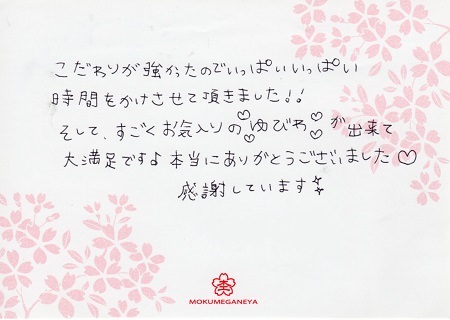 こだわりが強かったのでいっぱいいっぱい
時間をかけさせて頂きました!!
そして、すごくお気入りの♡ゆびわ♡が出来て
大満足ですよ本当にありがとうございました♡
感謝しています
MOKUMEGANEYA